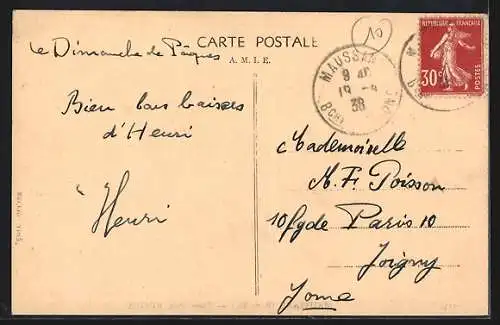 le Dimanche de Pâques
CARTE POSTALE
A. M. I. E.
10
MAUSSANE
9 40
19 -4
38
BCHES
RÉPUBLIQUE FRANÇAISE
30c
POSTES
Bien bons baisers
d'Henri
Henri
Mademoiselle
A. F. Poisson
10 fg de Paris 10
Joigny
Yonne